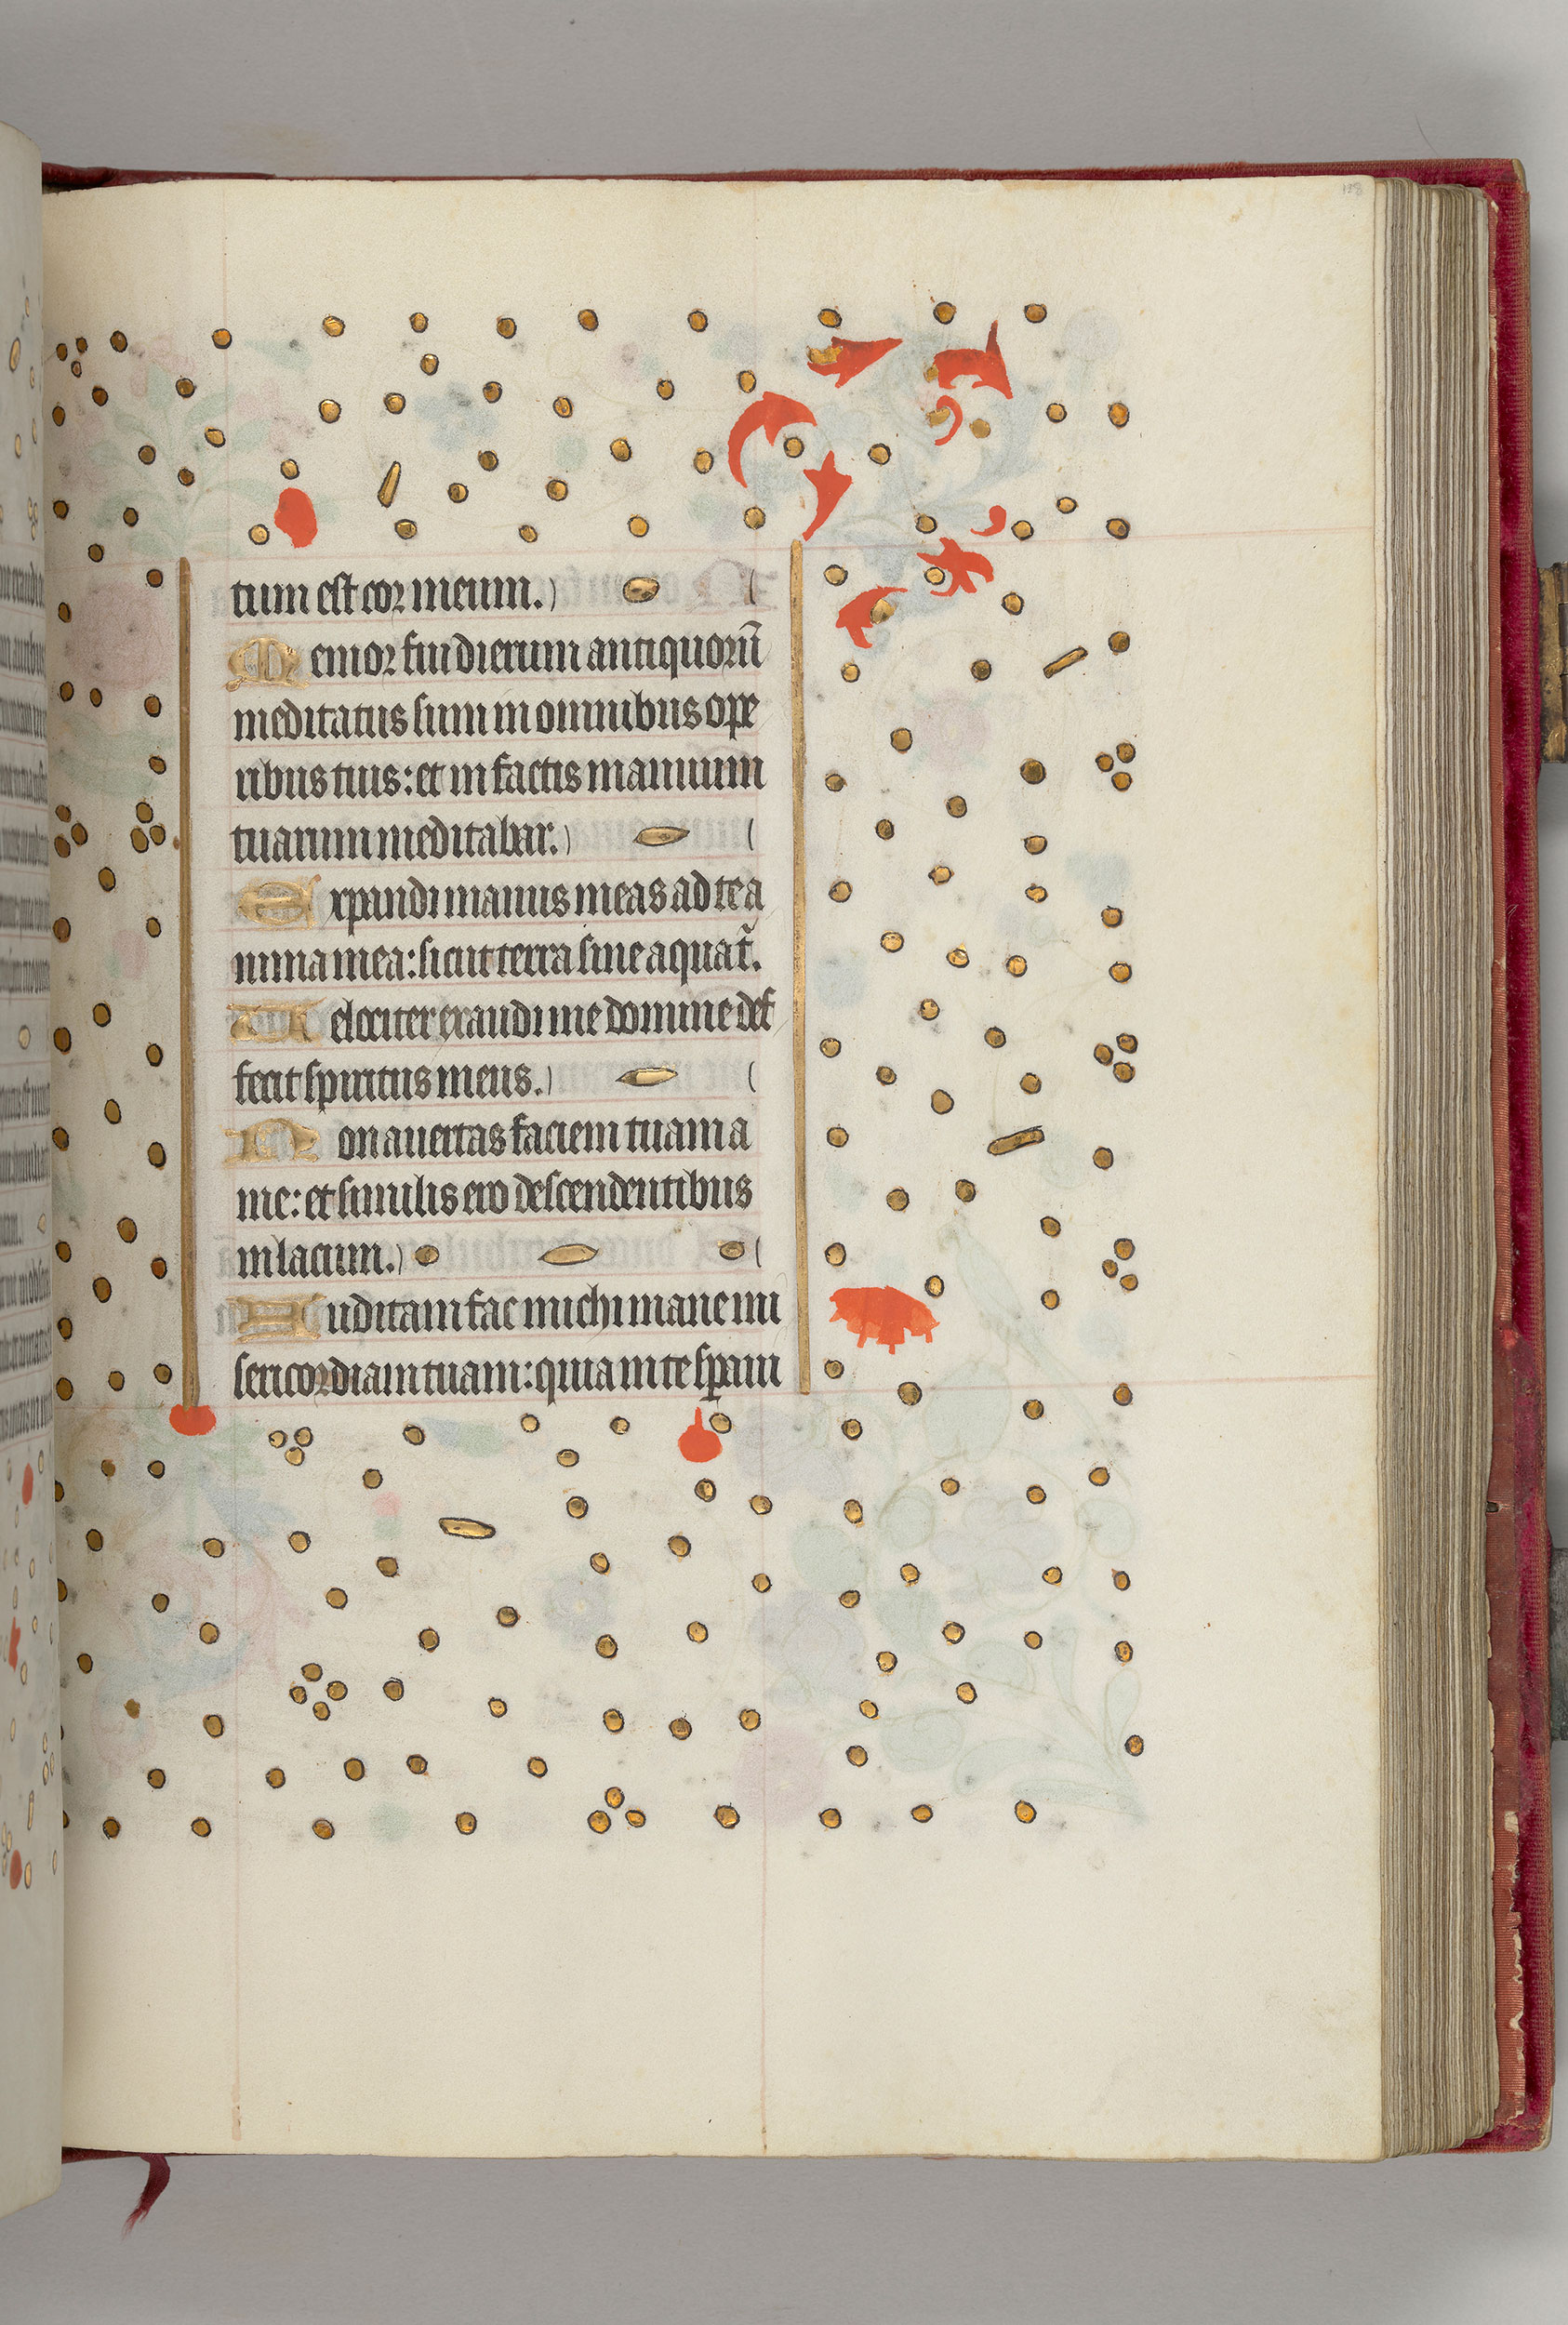 138
tum est cor meum.
Memor fui dierum antiquorū
meditatus sum in omnibus ope
ribus tuis: et in factis manuum
tuarum meditabar.
Expandi manus meas ad te a
nima mea: sicut terra sine aqua t̄.
Velociter exaudi me domine def
fecit spiritus meus.
Non avertas faciem tuam a
me: et similis ero descendentibus
in lacum.
Auditam fac michi mane mi
sericordiam tuam: quia in te spaui